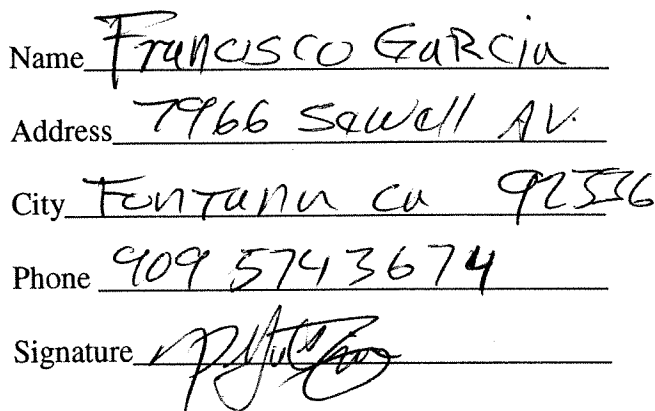 Name Francisco GaRcia
Address 7966 Sewell AV.
City Fontana ca 92336
Phone 909 574 3674
Signature